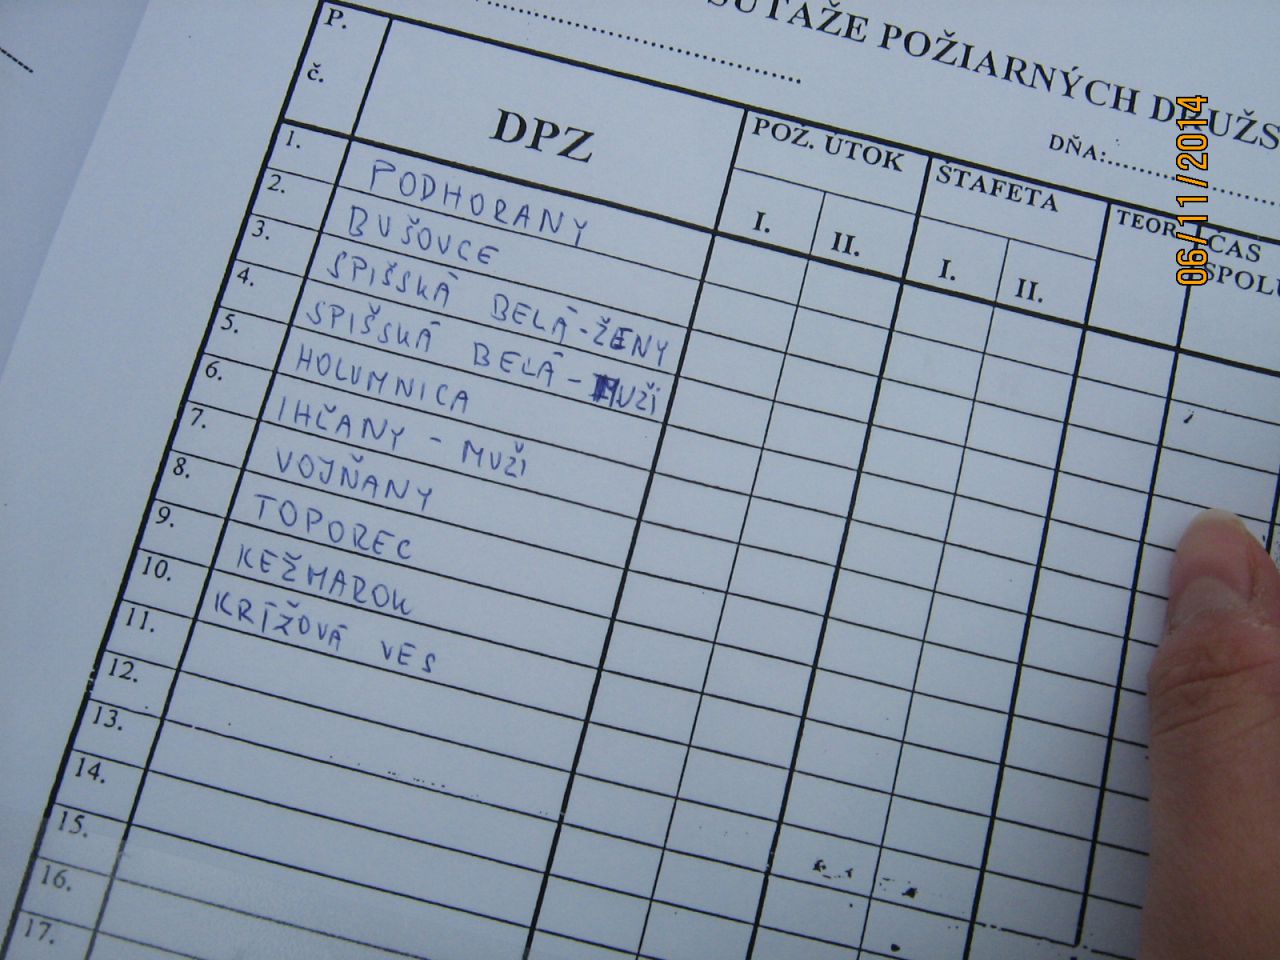 SÚŤAŽE POŽIARNÝCH DRUŽS
DŇA:
P. č.
DPZ
POŽ. ÚTOK
ŠTAFETA
TEOR.
ČAS SPOLU
I. II. I. II.
1. PODHORANY
2. BUŠOVCE
3. SPIŠSKÁ BELÁ - ŽENY
4. SPIŠSKÁ BELÁ - MUŽI
5. HOLUMNICA
6. IHĽANY - MUŽI
7. VOJŇANY
8. TOPOREC
9. KEŽMAROK
10. KRÍŽOVÁ VES
11.
12.
13.
14.
15.
16.
17.
06/11/2014